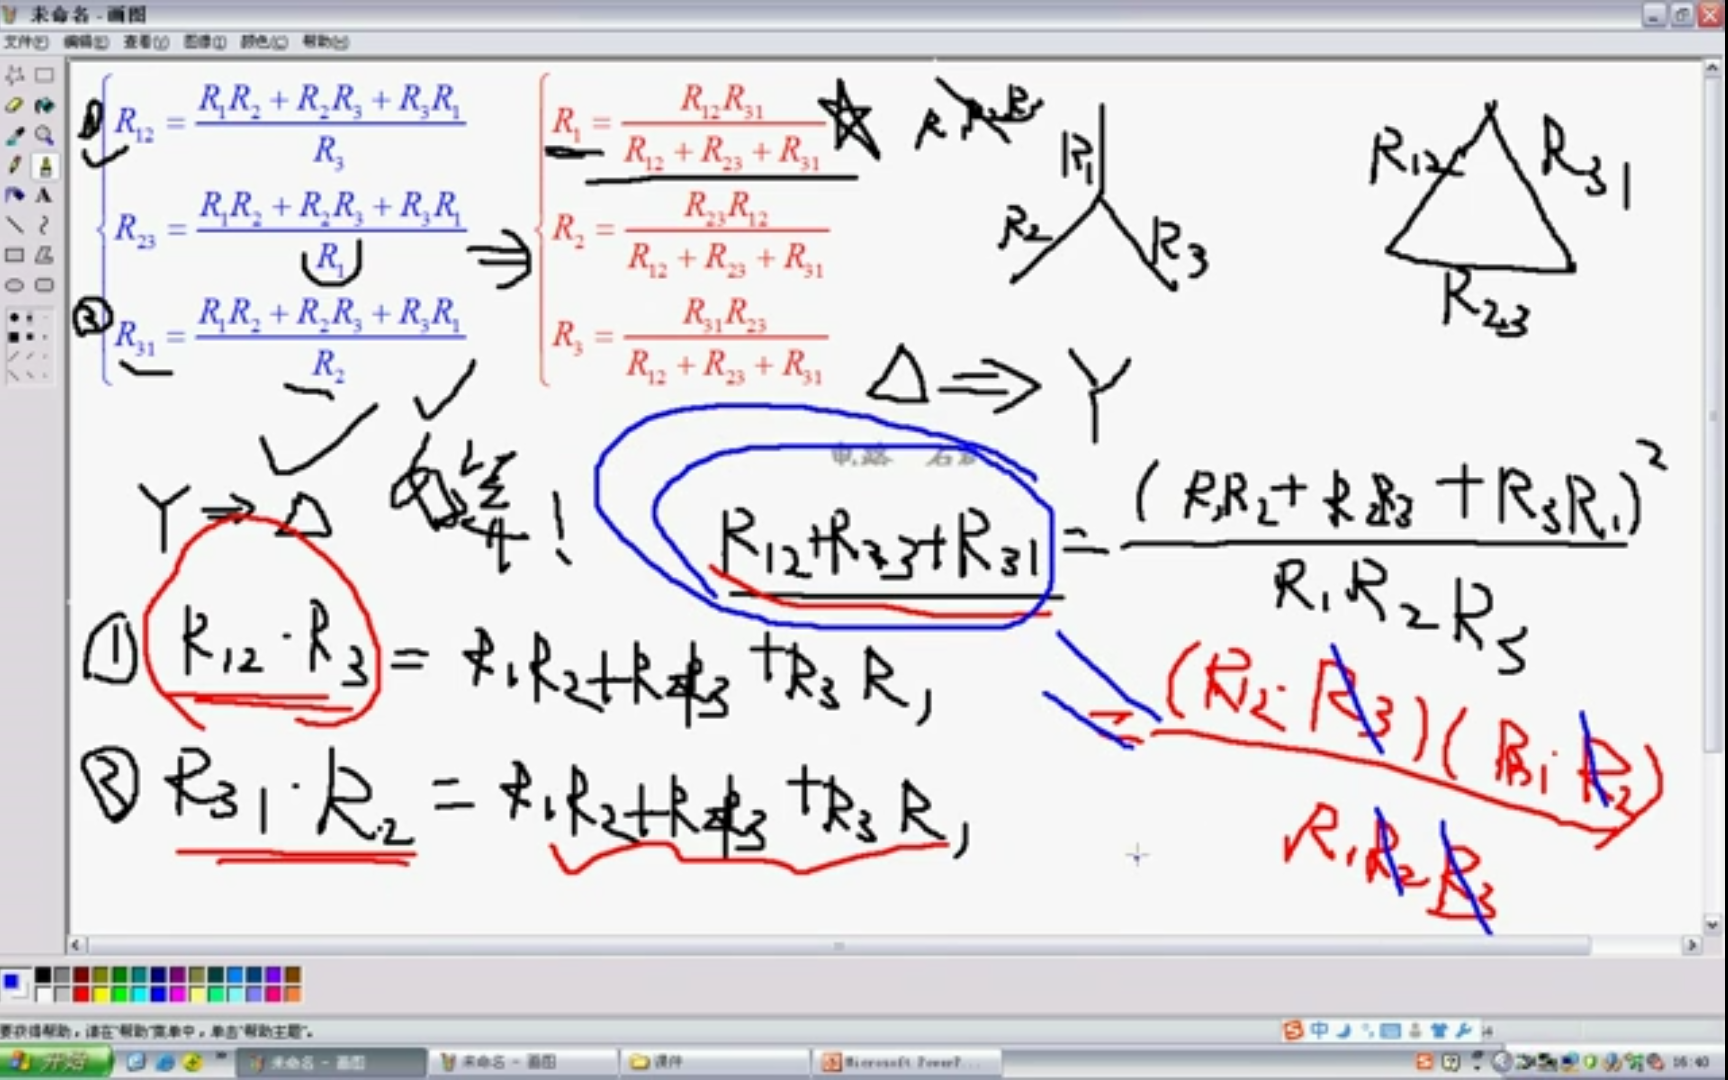 未命名 - 画图
文件(F) 编辑(E) 查看(V) 图像(I) 颜色(C) 帮助(H)
① R12 = (R1R2 + R2R3 + R3R1) / R3
R23 = (R1R2 + R2R3 + R3R1) / R1
② R31 = (R1R2 + R2R3 + R3R1) / R2
⇒
R1 = R12R31 / (R12 + R23 + R31) ☆
R2 = R23R12 / (R12 + R23 + R31)
R3 = R31R23 / (R12 + R23 + R31)
R1
R2
R3
R12
R31
R23
△ ⇒ Y
Y ⇒ △
!
电路
R12+R23+R31 = (R1R2+R2R3+R3R1)² / R1R2R3
① R12 · R3 = R1R2+R2R3+R3R1
② R31 · R2 = R1R2+R2R3+R3R1
= (R12 · R3)(R31 · R2) / R1R2R3
要获得帮助，请在"帮助"菜单中，单击"帮助主题"。
中
开始
未命名 - 画图
未命名 - 画图
课件
Microsoft PowerP...
16:40